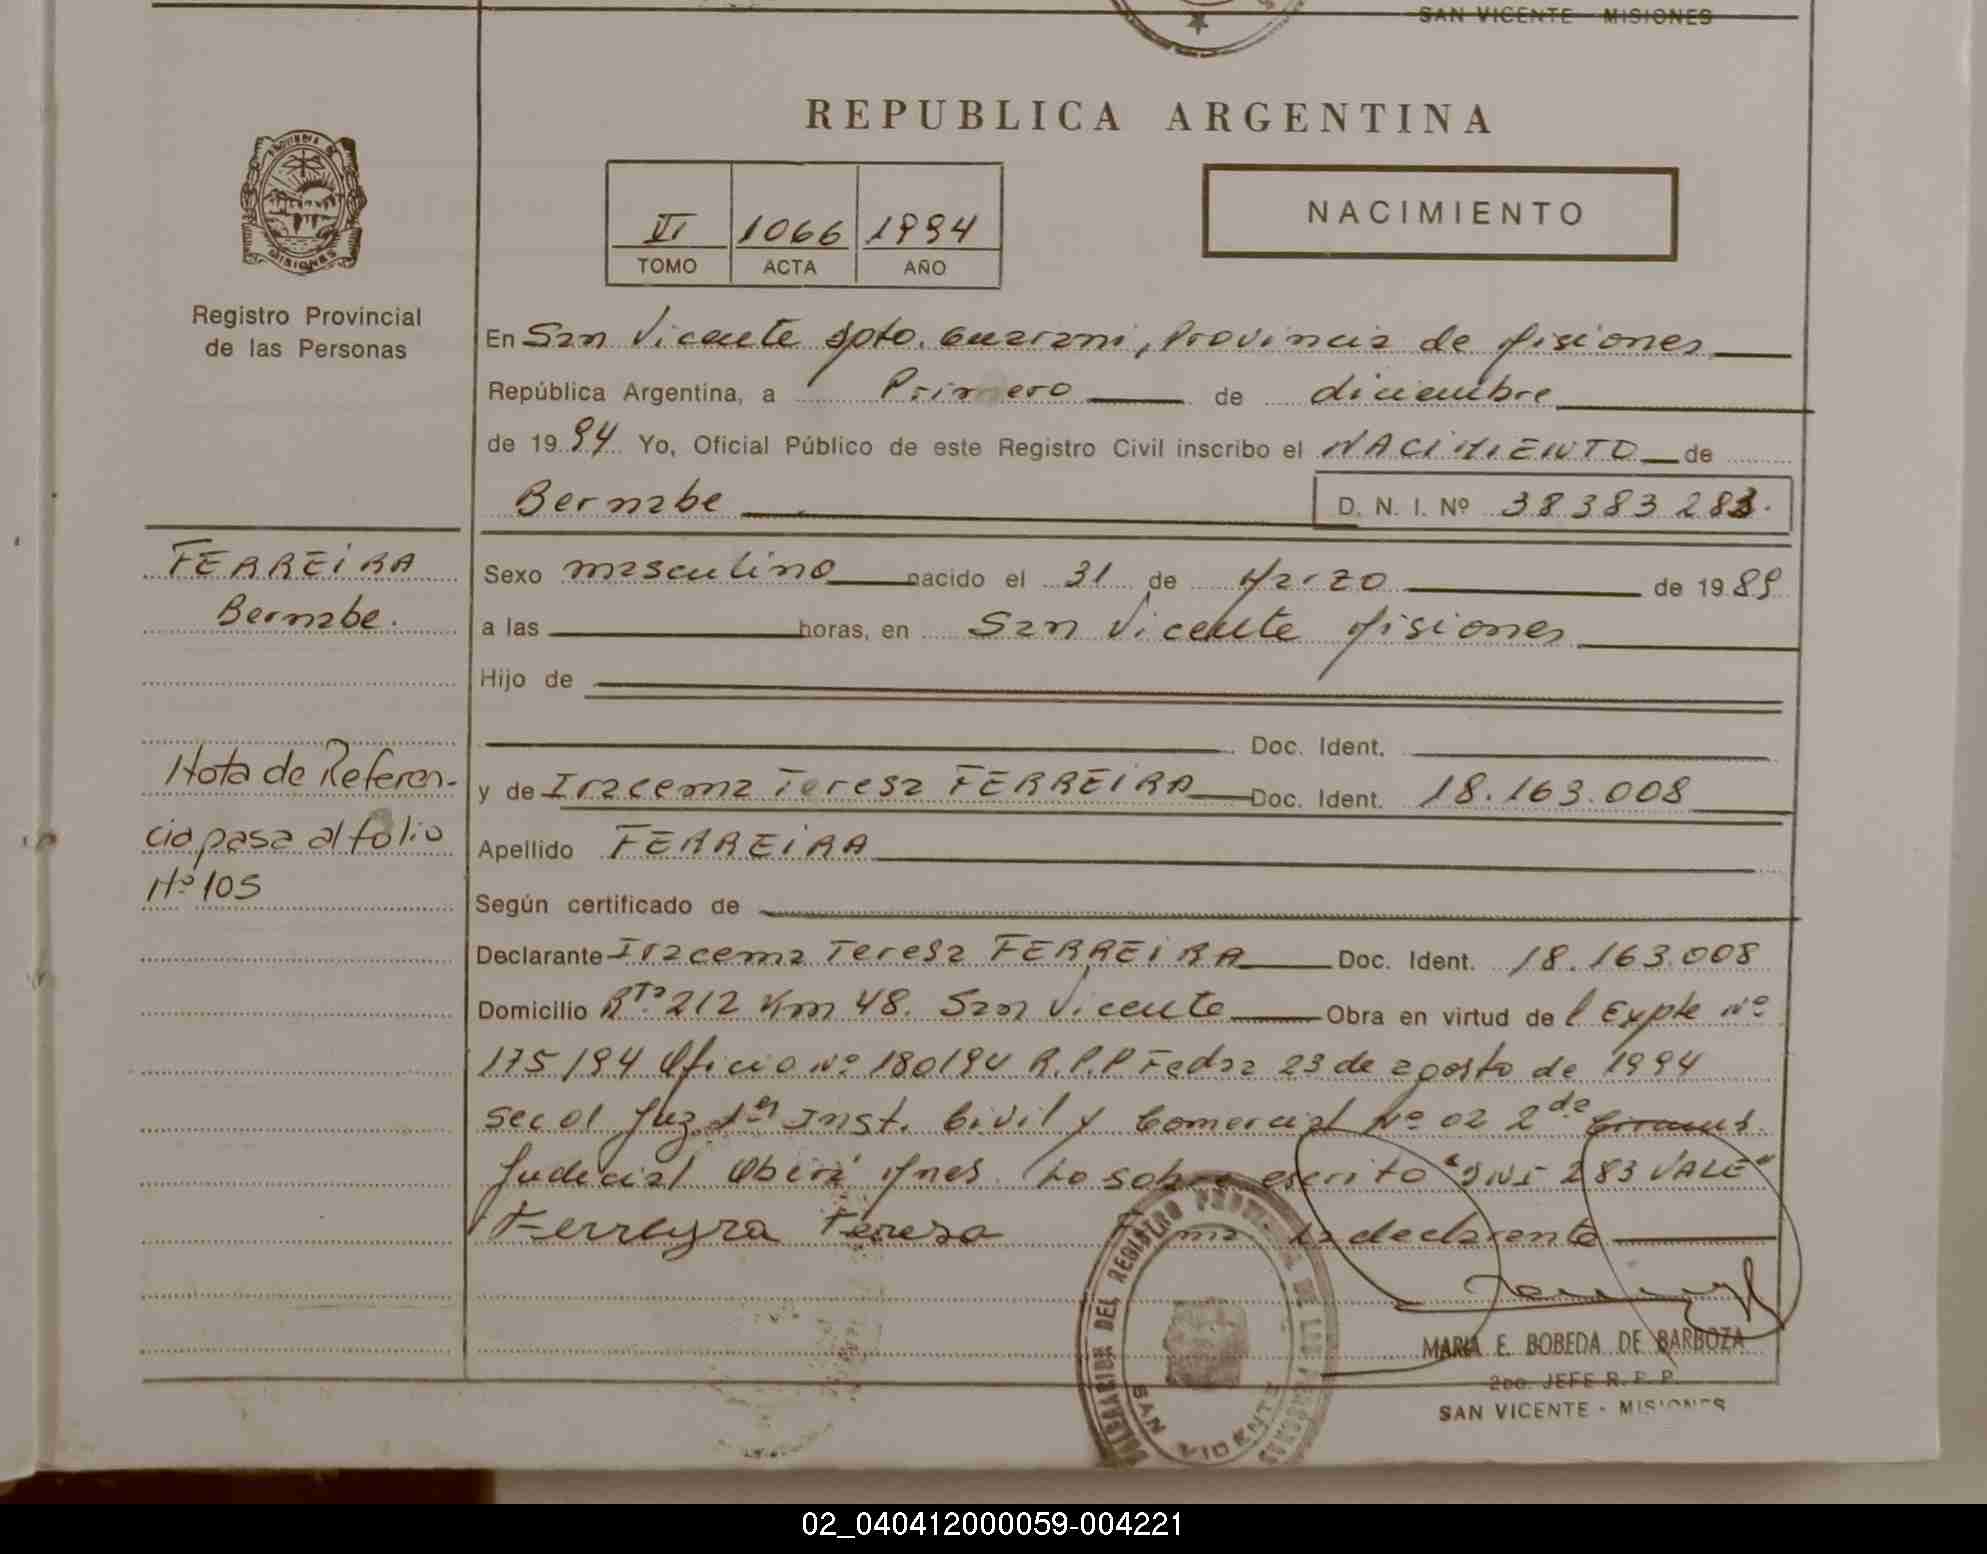 SAN VICENTE - MISIONES
REPUBLICA ARGENTINA
VI 1066 1994
TOMO ACTA AÑO
NACIMIENTO
MISIONES
Registro Provincial
de las Personas
En San Vicente Dpto. Guarani, Provincia de Misiones
República Argentina, a Primero de diciembre
de 1994 Yo, Oficial Público de este Registro Civil inscribo el NACIMIENTO de
Bernabe D. N. I. Nº 38383283.
FERREIRA
Bernabe.
Sexo masculino nacido el 31 de Marzo de 1989
a las horas, en San Vicente Misiones
Hijo de
Doc. Ident.
Nota de Referen-
cia pasa al folio
Nº 105
y de Iracema Teresa FERREIRA Doc. Ident. 18.163.008
Apellido FERREIRA
Según certificado de
Declarante Iracema Teresa FERREIRA Doc. Ident. 18.163.008
Domicilio Rta. 212 Km 48. San Vicente Obra en virtud del Expte Nº
175/94 Oficio Nº 180/94 R.P.P Fecha 23 de agosto de 1994
Sec 01 Juz. 1er Inst. Civil y Comercial Nº 02 2da
Judicial Oberá Mnes. Lo sobre escrito "DNI 283 VALE"
Ferreyra Teresa Firma la declarante
REGISTRO PROVINCIAL DE LAS PERSONAS
SAN VICENTE
MARIA E. BOBEDA DE BARBOZA
2do. JEFE R. P. P.
SAN VICENTE - MISIONES
02_040412000059-004221